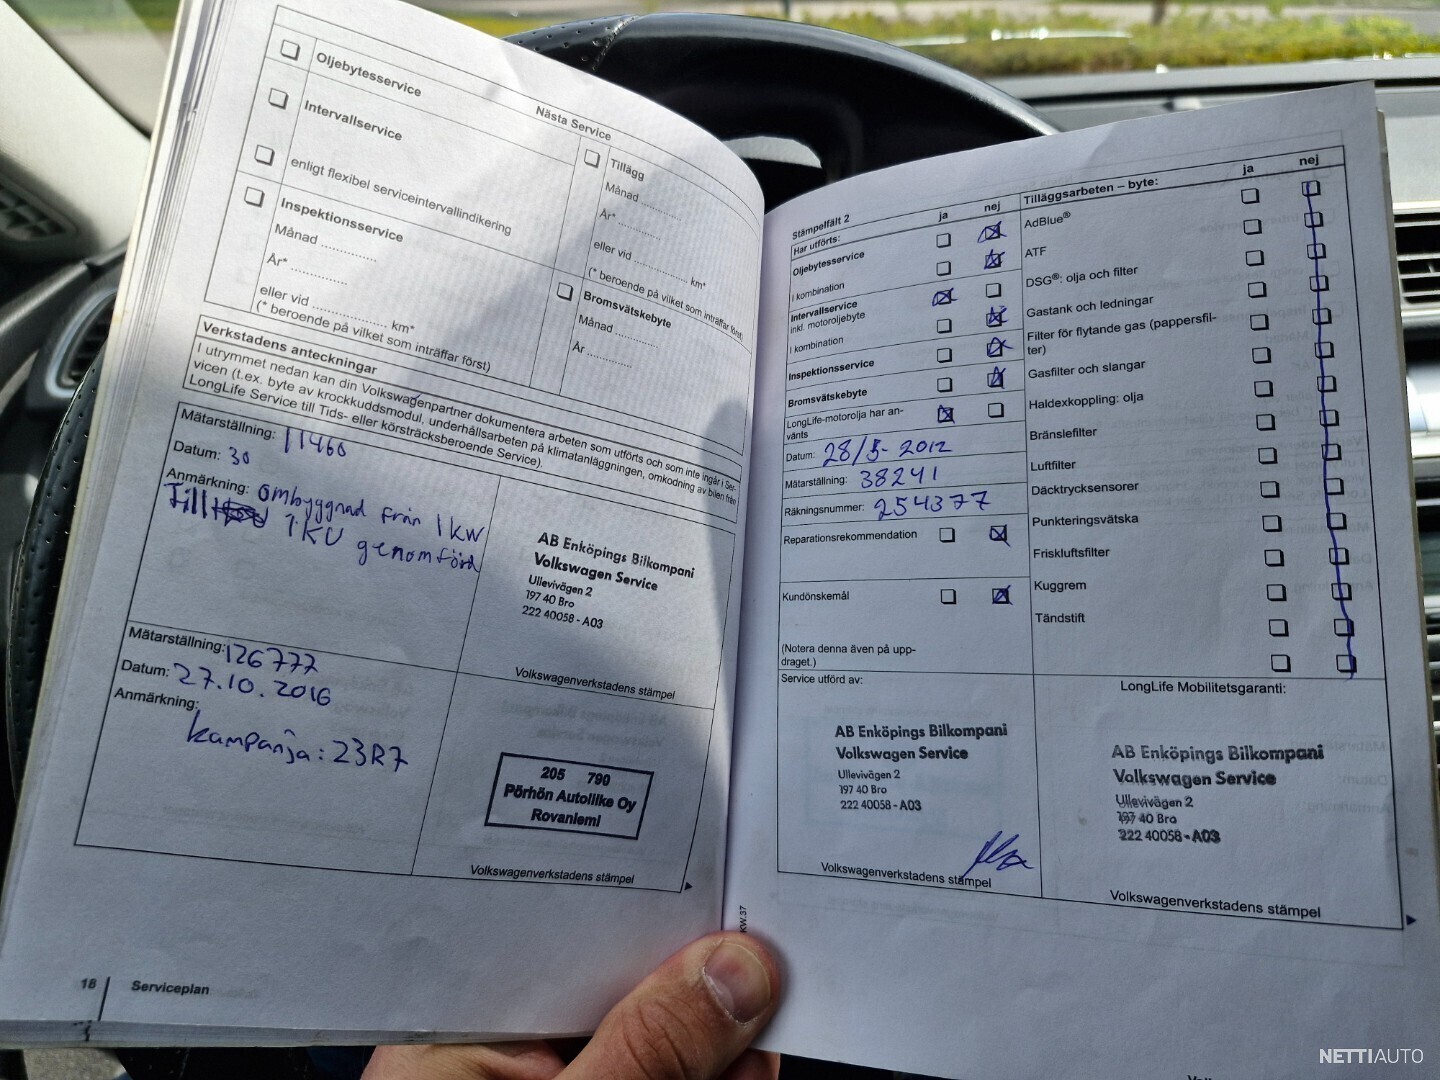 Oljebytesservice
Nästa Service
Intervallservice
enligt flexibel serviceintervallindikering
Inspektionsservice
Månad ..............
År* ..............
eller vid .................. km*
(* beroende på vilket som inträffar först)
Tillägg
Månad ..............
År* ..............
eller vid .................. km*
(* beroende på vilket som inträffar först)
Bromsvätskebyte
Månad ..............
År ..............
Verkstadens anteckningar
I utrymmet nedan kan din Volkswagenpartner dokumentera arbeten som utförts och som inte ingår i Ser-
vicen (t.ex. byte av krockkuddsmodul, underhållsarbeten på klimatanläggningen, omkodning av bilen från
LongLife Service till Tids- eller körsträcksberoende Service).
Mätarställning: 11460
Datum: 30
Anmärkning: ombyggnad från 1KW
Till 1KU genomförd
AB Enköpings Bilkompani
Volkswagen Service
Ullevivägen 2
197 40 Bro
222 40058 - A03
Volkswagenverkstadens stämpel
Mätarställning: 126777
Datum: 27.10.2016
Anmärkning:
kampanja: 23R7
205 790
Pörhön Autoliike Oy
Rovaniemi
Volkswagenverkstadens stämpel
18
Serviceplan
Stämpelfält 2
Har utförts:
ja
nej
Oljebytesservice
I kombination
Intervallservice
inkl. motoroljebyte
I kombination
Inspektionsservice
Bromsvätskebyte
LongLife-motorolja har an-
vänts
Datum: 28/5-2012
Mätarställning: 38241
Räkningsnummer: 254377
Reparationsrekommendation
Kundönskemål
(Notera denna även på upp-
draget.)
Service utförd av:
AB Enköpings Bilkompani
Volkswagen Service
Ullevivägen 2
197 40 Bro
222 40058 - A03
Volkswagenverkstadens stämpel
Tilläggsarbeten – byte:
ja
nej
AdBlue®
ATF
DSG®: olja och filter
Gastank och ledningar
Filter för flytande gas (pappersfil-
ter)
Gasfilter och slangar
Haldexkoppling: olja
Bränslefilter
Luftfilter
Däcktrycksensorer
Punkteringsvätska
Friskluftsfilter
Kuggrem
Tändstift
LongLife Mobilitetsgaranti:
AB Enköpings Bilkompani
Volkswagen Service
Ullevivägen 2
197 40 Bro
222 40058 - A03
Volkswagenverkstadens stämpel
KW.37
NETTIAUTO